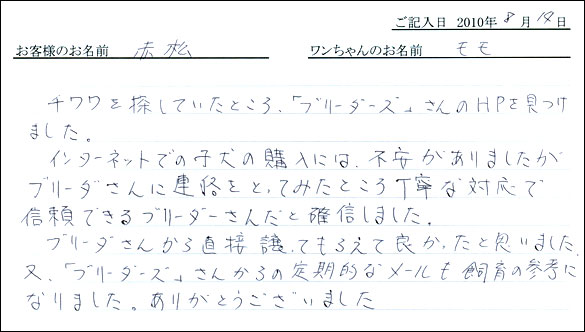 ご記入日 2010年 8月 19日
お客様のお名前 赤松 ワンちゃんのお名前 モモ
チワワを探していたところ、「ブリーダーズ」さんのHPを見つけ
ました。
インターネットでの子犬の購入には、不安がありましたが
ブリーダさんに連絡をとってみたところ丁寧な対応で
信頼できるブリーダーさんだと確信しました。
ブリーダさんから直接譲ってもらえて良かったと思いました。
又、「ブリーダーズ」さんからの定期的なメールも飼育の参考に
なりました。ありがとうございました